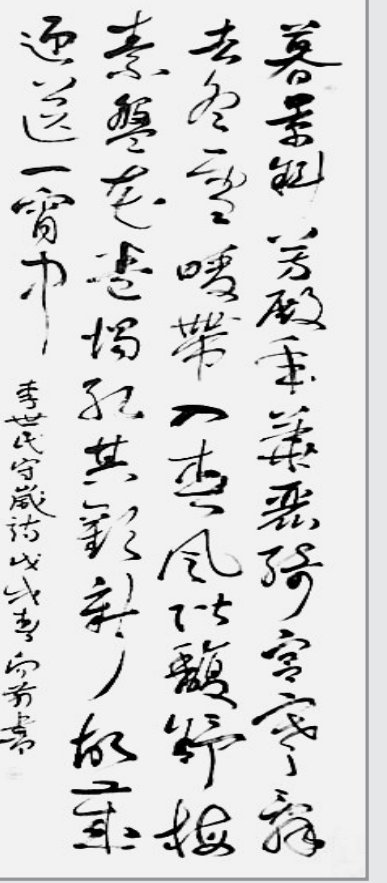 暮景斜芳殿年華麗綺宮寒辭
去冬雪暖帶入春風階馥舒梅
素盤花卷燭紅其歡新故歲
迎送一宵中
李世民守歲詩戊戌春向前書